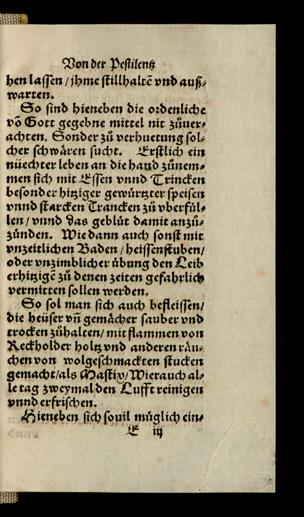 Von der Pestilentz
hen lassen / jhme stillhaltē vnd auß⸗
warten.
So sind hieneben die ordenliche
võ Gott gegebne mittel nit zůuer⸗
achten. Sonder zů verhuetung sol⸗
cher schwären sucht. Erstlich ein
nüechter leben an die hand zůnem⸗
men sich mit Essen vnnd Trincken
besonder hitziger gewürtzter speisen
vnnd starcken Trancken zů vberfül⸗
len / vnnd das geblüt damit anzů⸗
zünden. Wie dann auch sonst mit
vnzeitlichen Baden / heissenstuben /
oder vnzimblicher übung den Leib
erhitzigē zů denen zeiten gefahrlich
vermitten sollen werden.
So sol man sich auch befleissen /
die heüser vñ gemächer sauber vnd
trocken zůhalten / mit flammen von
Reckholder holtz vnd anderen räu⸗
chen von wolgeschmackten stucken
gemacht / als Mastix / Wierauch al⸗
le tag zweymal den Lufft reinigen
vnnd erfrischen.
Hieneben sich souil müglich ein⸗
E iij